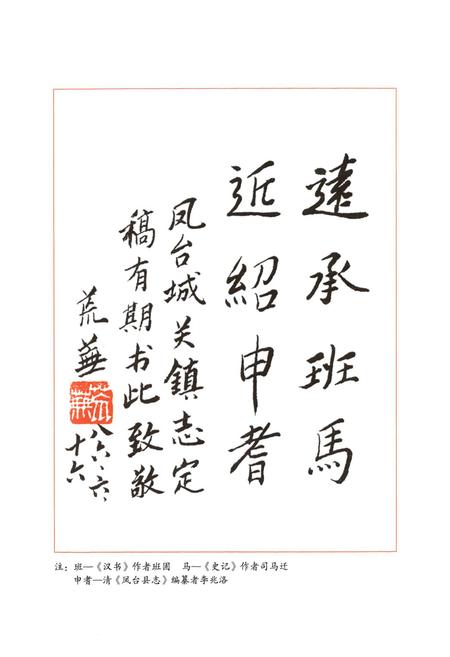 遠承班馬
近紹申耆
凤台城关鎮志定
稿有期书此致敬
荒蕪
荒蕪
八六、六、
十六
注：班—《汉书》作者班固　马—《史记》作者司马迁
申耆—清《凤台县志》编纂者李兆洛